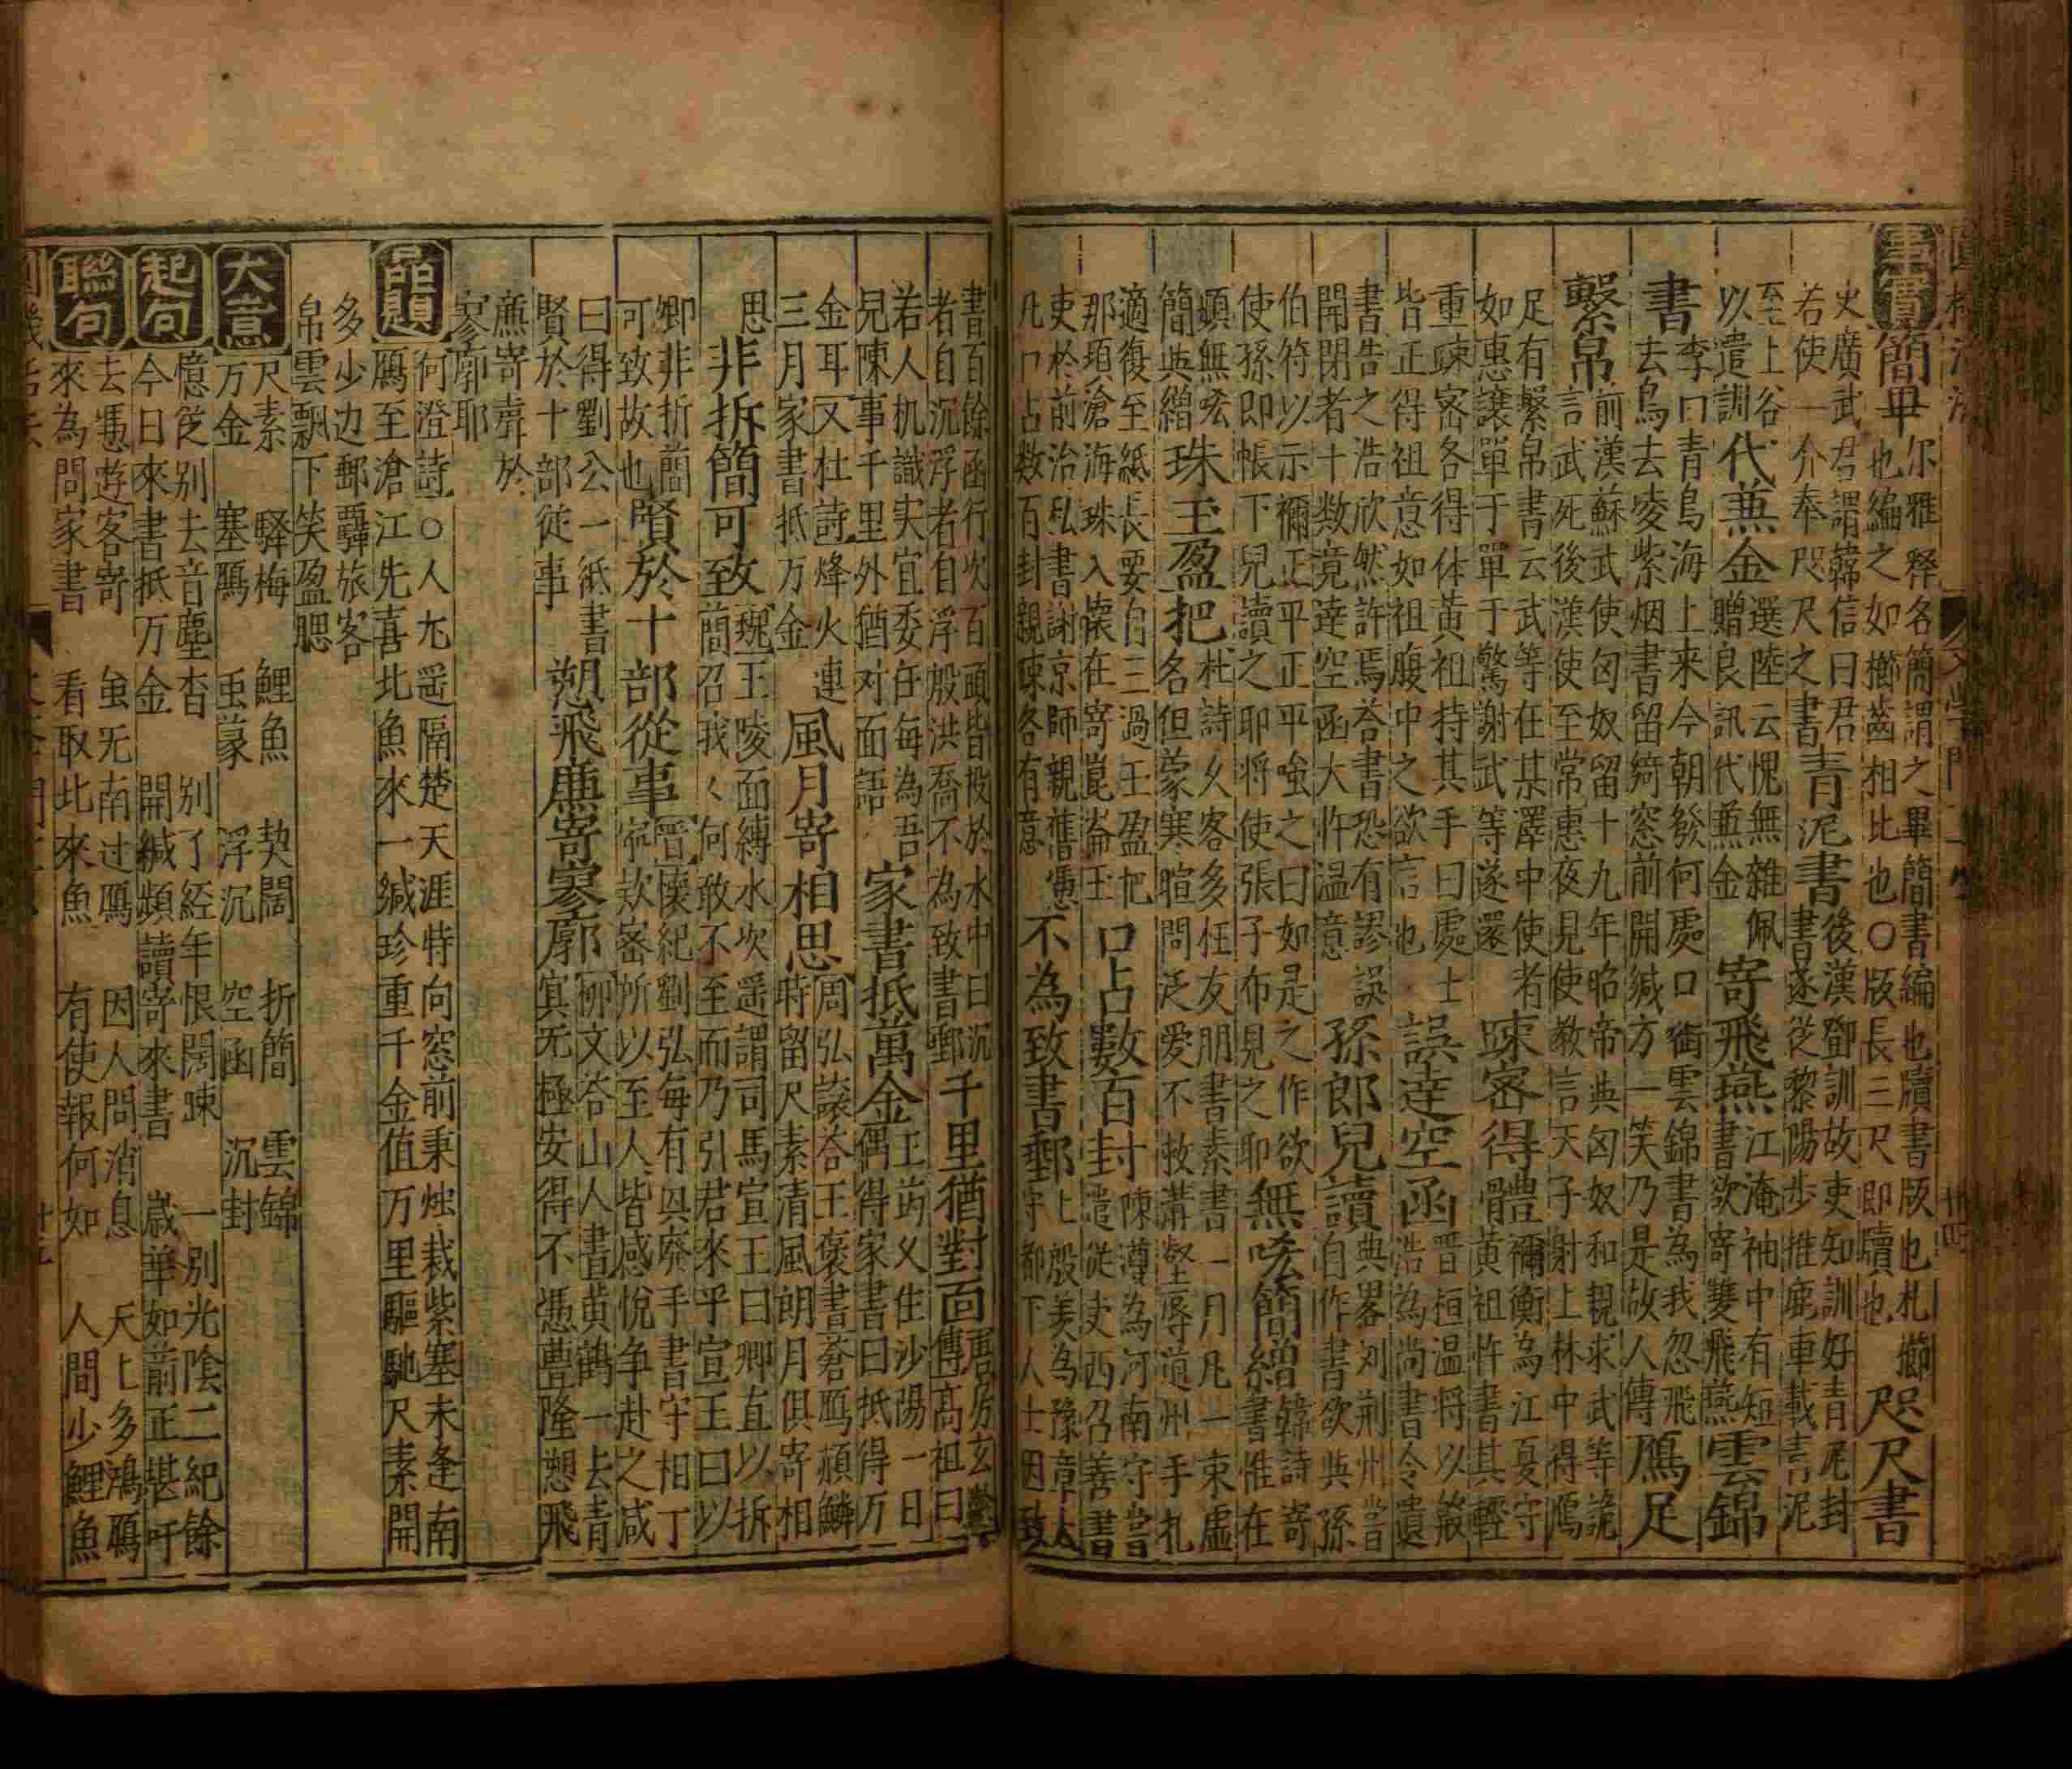 事實 簡畢 尔雅釋各簡謂之畢簡書編也牘書版也札櫛
也編之如櫛齒相比也〇版長三尺即牘也 咫尺書
史廣武君謂韓信曰君
若使一介奉咫尺之書 青泥書 後漢鄧訓故吏知訓好青尾封
書遂従黎陽步推鹿車載青泥
至上谷
以遣訓 代蒹金 選陸云愧無雜佩
贈良訊代蒹金 寄飛燕 江淹袖中有短
書欲寄雙飛燕 雲錦
書 李曰青鳥海上来今朝發何處口銜雲錦書為我忽飛
去鳥去凌紫烟書留綺窓前開緘方一笑乃是故人傳 鴈足
繫帛 前漢蘇武使匈奴留十九年昭帝與匈奴和親求武等詭
言武死後漢使至常惠夜見使教言天子射上林中得鴈
足有繫帛書云武等在某澤中使者
如惠讓單于單于驚謝武等遂還 疎密得體 禰衡為江夏守
黄祖作書其輕
重疎宻各得体黄祖持其手曰處士
皆正得祖意如祖腹中之欲言也 誤達空函 晋桓温將以殷
浩為尚書令遺
書告之浩欣然許焉荅書恐有謬誤
開閉者十数竟達空函大忤温意 孫郎兒讀 典畧刘荆州甞
自作書欲與孫
伯符以示禰正平正平嗤之曰如是之作欲
使孫即帳下兒讀之耶将使張子布見之耶 無咳簡繒 韓詩寄
書惟在
頻無咳
簡與繒 珠玉盈把 杜詩久客多枉友朋書素書一月凡一束虚
名但蒙寒暄問泛爱不救溝壑辱道州手札
適復至紙長要自三過玉盈把
那項滄海珠入懷在寄崑崙玉 口占數百封 陳遵為河南守當
遣從吏西召善書
吏於前治私書謝京師親舊憑
几口占数百封親疎各有意 不為致書郵 上殷羡為豫章太
守都下人士因致
書百餘函行次百頭皆投於水中曰沉
者自沉浮者自浮殷洪喬不為致書郵 千里猶對面 唐房玄齡
傳高祖曰
若人机識実宜委任每為吾
兒陳事千里外猶对面語 家書抵萬金 王筠父住沙陽一日
偶得家書曰抵得万
金耳又杜詩烽火連
三月家書抵万金 風月寄相思 周弘讓荅王褒書蒼鴈頳鱗
時留尺素清風朗月俱寄相
思 非折簡可致 魏王陵面縛水次遥謂司馬宣王曰卿直以折
簡召我〻何敢不至而乃引君來乎宣王曰以
卿非折簡
可致故也 賢於十部從事 晋懷紀劉弘每有㒷廢手書守相丁
寧欵密所以至人皆感悅争赴之咸
曰得劉公一紙書
賢於十部從事 愬飛廉寄寥廓 柳文荅山人書黄鶴一去青
冥无極安得不憑豊隆愬飛
廉寄聲於
寥廓耶
品題 何澄詩〇人尢遥隔楚天涯特向窓前秉烛裁紫塞未逢南
鴈至滄江先喜北魚來一緘珍重千金值万里驅馳尺素開
多少边郵羁旅客
帛雲飄下笑盈腮
大意 尺素 驛梅 鯉魚 契闊 折簡 雲錦
万金 塞鴈 䖝篆 浮沉 空函 沉封
起句 憶從别去音塵杳 别了経年恨闊疎 一别光陰二紀餘
今日來書抵万金 開緘頻讀寄來書 歳華如前正堪吁
聯句 去憑遊客寄 虽无南过鴈 因人問消息 天上多鴻鴈
來為問家書 看取北來魚 有使報何如 人間少鯉魚